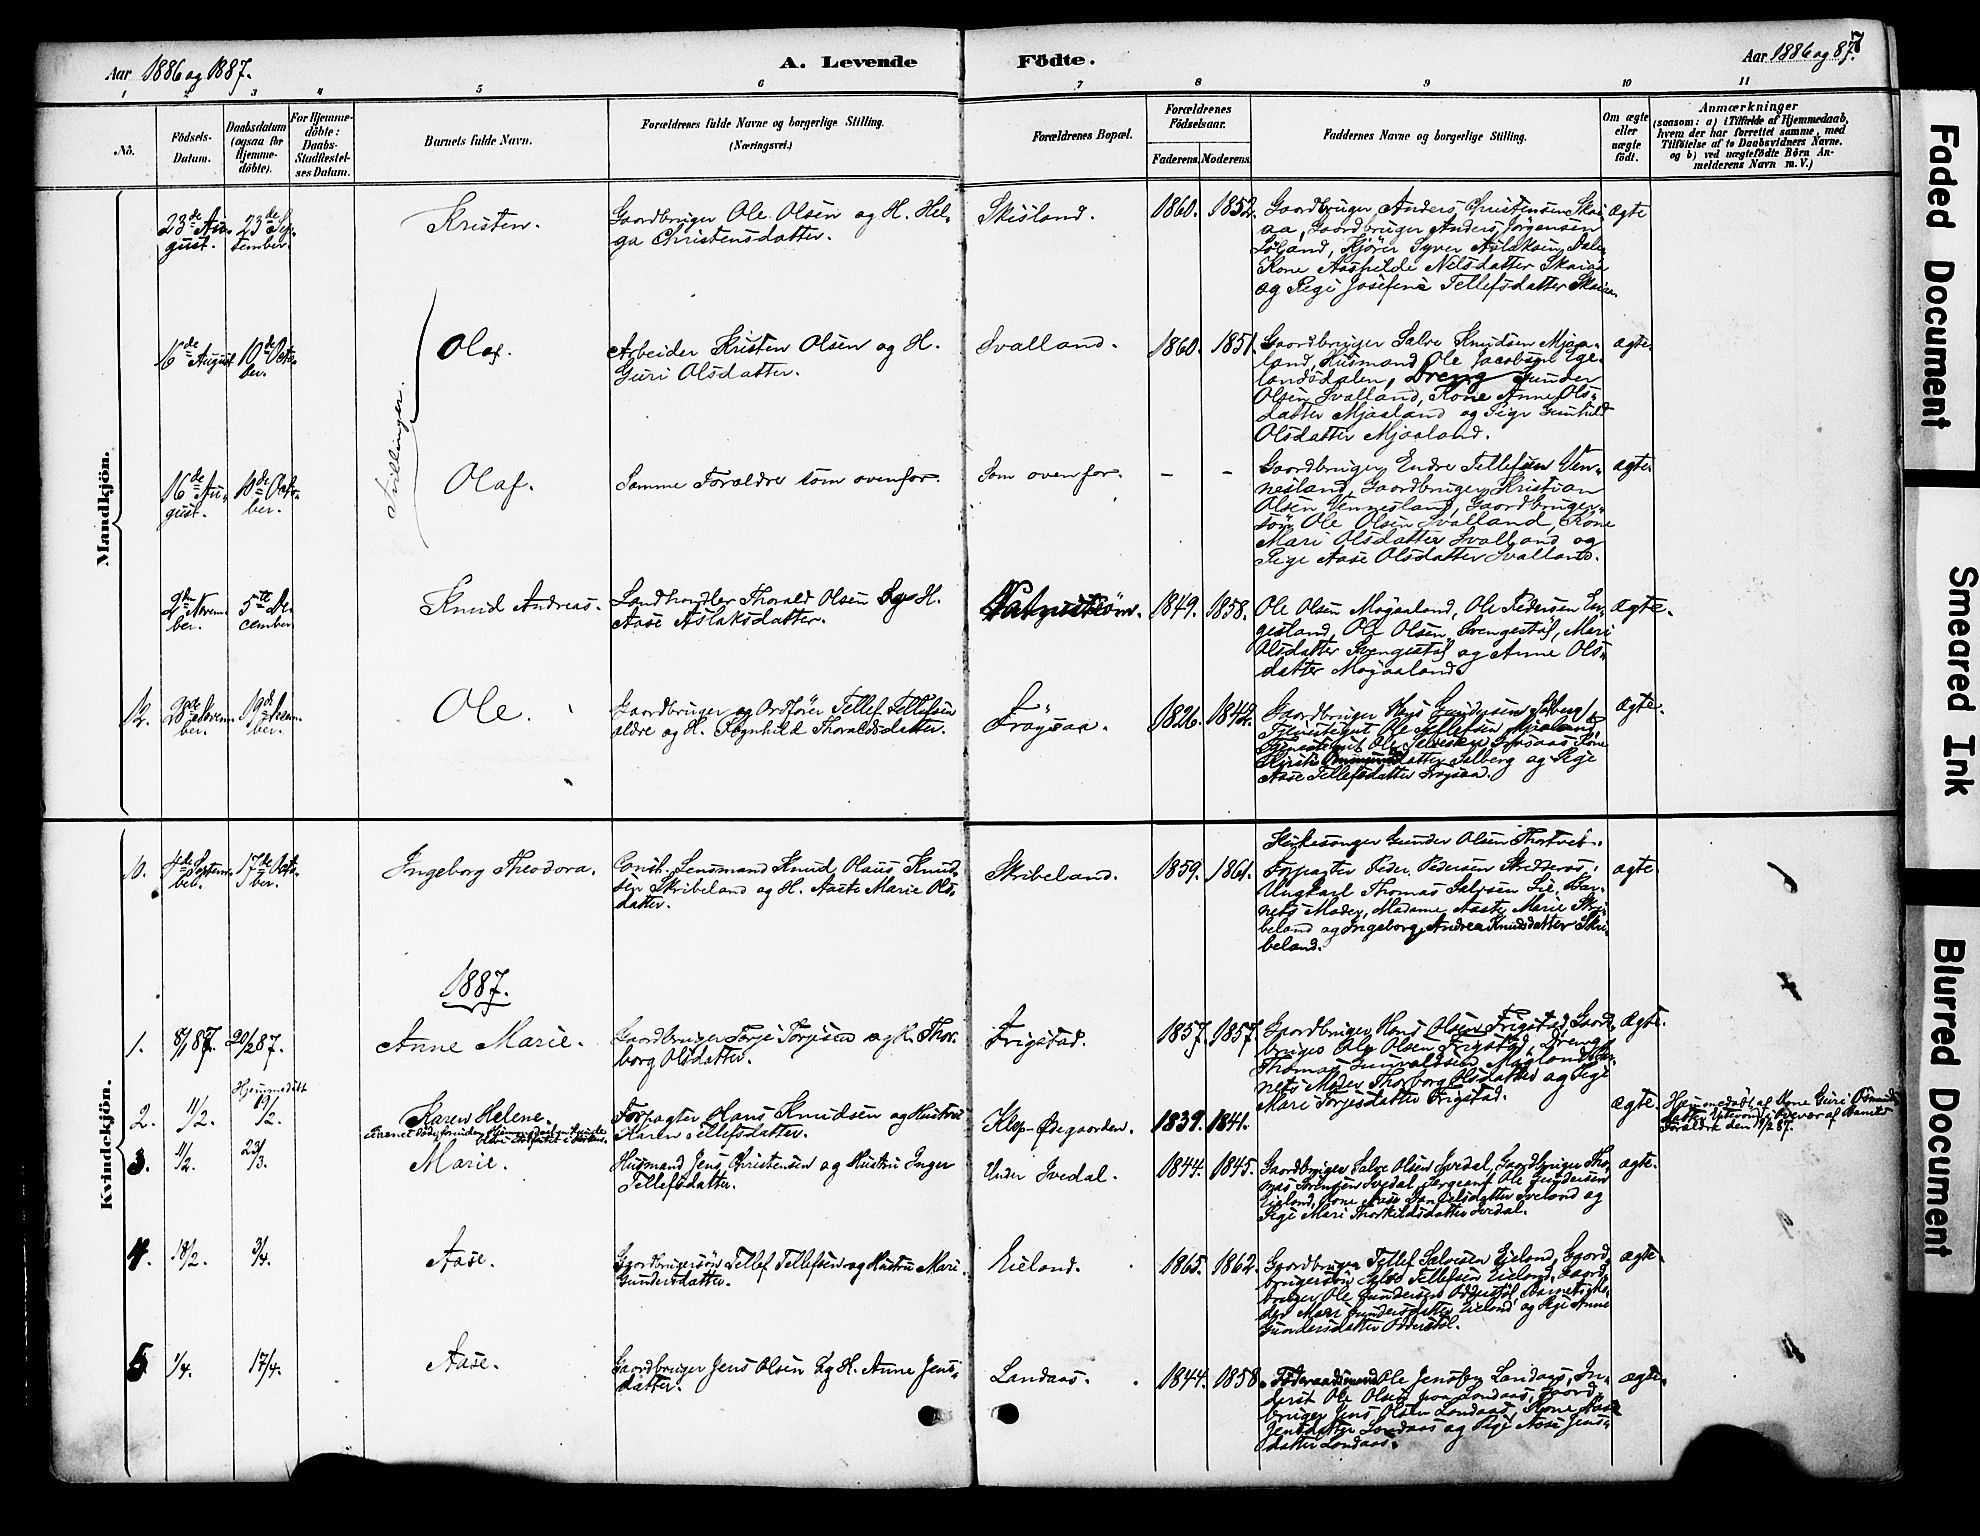 Aar 1886 og 1887.
A. Levende
Födte.
Aar 1886 og 87.
7
1 2 3 4 5 6 7 8 9 10 11
No.
Födsels-
Datum.
Daabsdatum
(ogsaa for
Hjemme-
döbte).
For Hjemme-
döbte:
Daabs-
Stadfæstel-
ses Datum.
Barnets fulde Navn.
Forældrenes fulde Navne og borgerlige Stilling.
(Næringsvei.)
Forældrenes Bopæl.
Forældrenes
Födselsaar.
Faderens. Moderens.
Faddernes Navne og borgerlige Stilling.
Om ægte
eller
uægte
födt.
Anmærkninger
(saasom: a) i Tilfælde af Hjemmedaab,
hvem der har forrettet samme, med
Tilföielse af to Daabsvidners Navne,
og b) ved uægtefödte Börn An-
melderens Navn m. V.)
Mandkjön.
23de Au-
gust.
23de Sep-
tember
Kristen.
Gaardbruger Ole Olsen og H. Hel-
ga Christensdatter.
Skisland.
1860. 1852.
Gaardbruger Anders Christensen Skai-
aa, Gaardbruger Anders Jörgensen
Löland, Kjörer Syver Aslaksen Dale,
Kone Aashilde Nilsdatter Skaiaa
og Pige Josefine Tellefsdatter Skaiaa.
ægte
Tvillinger.
16de August
10de Octo-
ber.
Olaf.
Arbeider Kristen Olsen og H.
Guri Olsdatter.
Svalland.
1860. 1851.
Gaardbruger Salve Knudsen Mjaa-
land, Husmand Ole Jacobsen Ege-
landsdalen, Dreng Gunder
Olsen Svalland, Kone Anne Ols-
datter Mjaaland og Pige Gunhild
Olsdatter Mjaaland.
ægte.
16de Au-
gust.
10de Octo-
ber.
Olaf.
Samme Forældre som ovenfor.
Som ovenfor.
- -
Gaardbruger Endre Tellefsen Ven-
nesland, Gaardbruger Kristian
Olsen Vennesland, Gaardbruger-
sön Ole Olsen Svalland, Kone
Mari Olsdatter Svalland og
Pige Aase Olsdatter Svalland.
ægte.
Novem-
ber.
5te De-
cember
Knud Andreas.
Landhandler Thorald Olsen og H.
Aase Aslaksdatter.
1849. 1858.
Ole Olsen Mojaaland, Ole Pedersen En-
gesland, Ole Olsen Svengestöl, Mari
Olsdatter Svengestöl og Anne Ols-
datter Mojaaland.
ægte.
12.
28de Novem-
ber.
19de Decem-
ber.
Ole.
Gaardbruger og Ordförer Tellef Tellefsen
ældre og H. Ragnhild Thoraldsdatter.
Fröysaa.
1826. 1842.
Gaardbruger Gundersen Solberg,
Tjenestegut Ole Tellefsen Mjaaland,
Tjenestegut Ole Kone
Solberg og Pige
Aase Tellefsdatter Fröysaa.
ægte.
Kvindekjön.
10.
4de Septem-
ber.
17de Octo-
ber.
Ingeborg Theodora.
Const. Lensmand Knud Olaus Knud-
sen Skribeland og H. Aaste Marie Ols-
datter.
Skribeland.
1859. 1861.
Kirkesanger Gunder Olsen Thortveit.
Forpagter Peder Pedersen
Ungkarl Thomas Salvesen Lie, Bar-
nets Moder, Madame Aaste Marie Skri-
beland og Ingeborg Andrea Knudsdatter Skri-
beland.
ægte.
1887.
1.
8/1 87.
20/2 87.
Anne Marie.
Gaardbruger Torje Torjesen og H. Thor-
borg Olsdatter.
Frigstad.
1857. 1857.
Gaardbruger Hans Olsen Frigstad, Gaard-
bruger Ole Olsen Frigstad, Dreng
Thomas Gunvaldsen Bar-
nets Moder Thorborg Olsdatter og Pige
Mari Torjesdatter Frigstad.
ægte.
2.
11/2.
Hjemmedöbt
19/2.
Karen Helene.
Forpagter Hans Knudsen og Hustru
Karen Tellefsdatter.
Klep-Ödegaarden.
1839. 1841.
ægte.
Hjemmedöbt af Kone Guri
i Overvær af Barnets
Forældre den 19/2 87.
3.
4/2.
23/3.
Marie.
Husmand Jens Christensen og Hustru Inger
Tellefsdatter.
Under Ivedal.
1844. 1845.
Gaardbruger Salve Olsen Ivedal, Gaardbruger Tho-
mas Sörensen Ivedal, Sergeant Ole Gundersen
Eieland, Kone Aase Danielsdatter Iveland og
Pige Mari Thorkildsdatter Ivedal.
ægte.
4.
18/2.
3/4.
Aase.
Gaardbrugersön Tellef Tellefsen og Hustru Mari
Gundersdatter.
Eieland.
1865. 1862.
Gaardbruger Tellef Salvesen Eieland, Gaard-
brugersön Salve Tellefsen Eieland, Gaard-
bruger Ole Gundersen Odderstöl, Barnets Mo-
der Mari Gundersdatter Eieland og Pige Anne
Gundersdatter Odderstöl.
ægte.
5.
1/4.
17/4.
Aase.
Gaardbruger Jens Olsen og H. Anne Jens-
datter.
Landaas.
1844. 1858.
Föderaadsmand Ole Jensen Landaas, In-
derst Ole Olsen paa Landaas, Gaard-
bruger Jens Olsen Landaas, Kone Aase
Jensdatter Landaas og Pige Aase Jens-
datter Landaas.
ægte.
Faded Document
Smeared Ink
Blurred Document